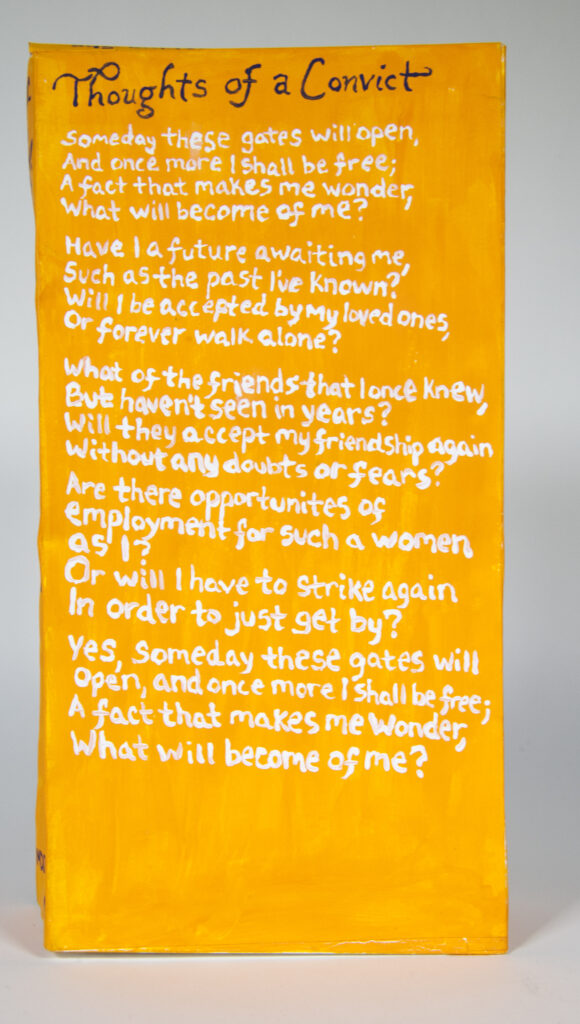 Thoughts of a Convict
Someday these gates will open,
And once more I shall be free;
A fact that makes me wonder,
What will become of me?
Have I a future awaiting me,
Such as the past I've known?
Will I be accepted by my loved ones,
Or forever walk alone?
What of the friends that I once knew,
But haven't seen in years?
Will they accept my friendship again
Without any doubts or fears?
Are there opportunites of
employment for such a women
as I?
Or will I have to strike again
In order to just get by?
Yes, someday these gates will
open, and once more I shall be free;
A fact that makes me wonder,
What will become of me?